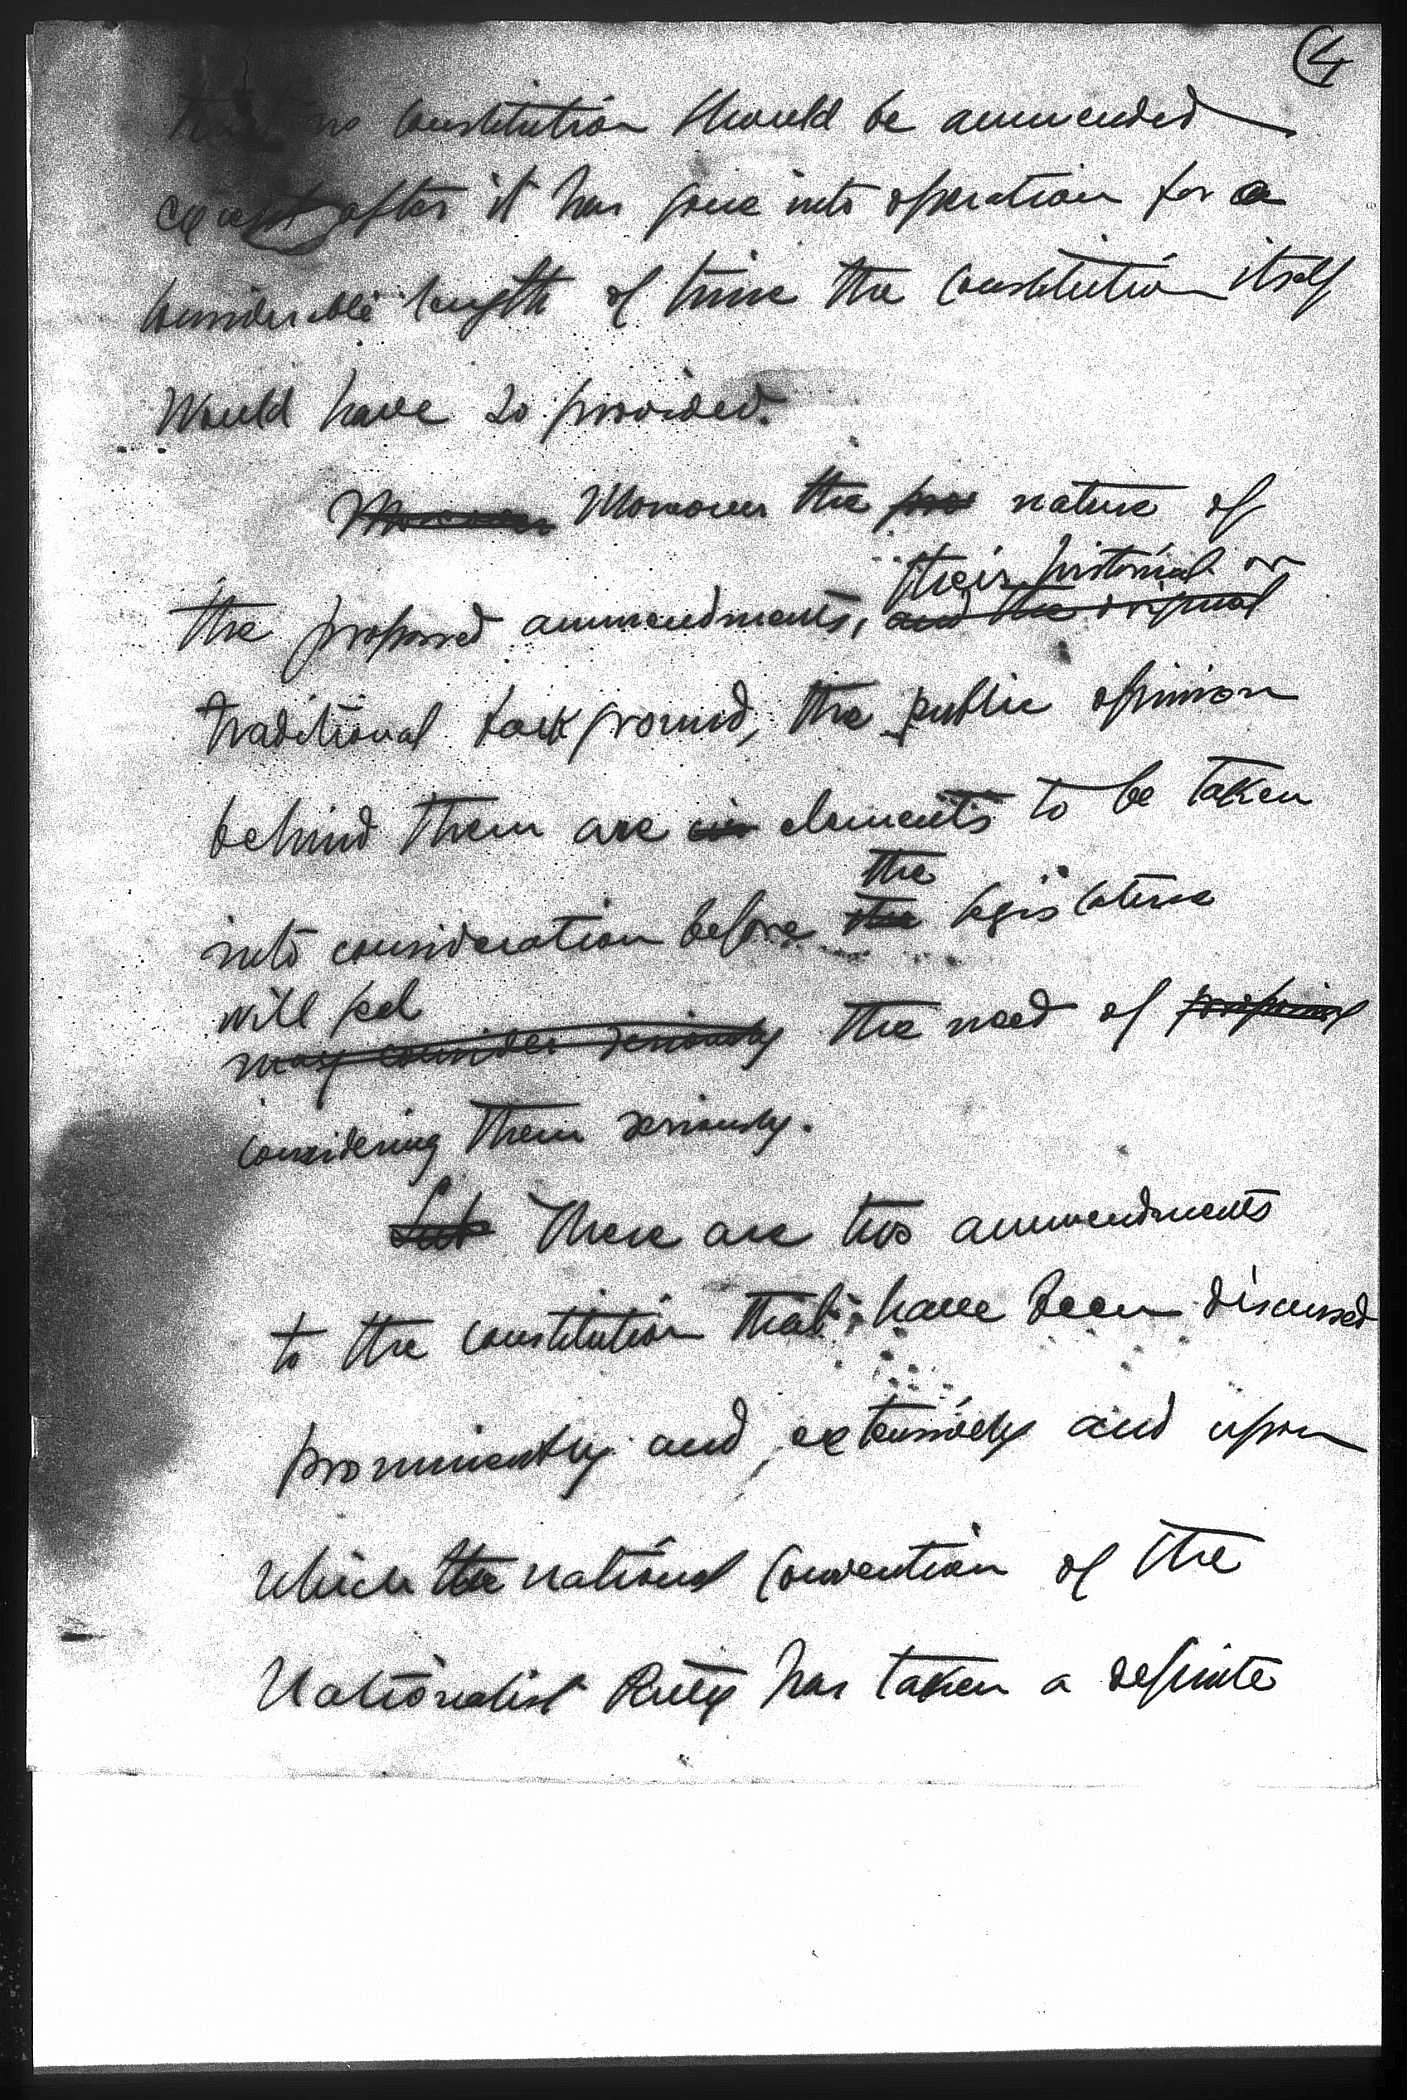 4
that no constitution should be ammended
except after it has gone into operation for a
considerable length of time the constitution itself
would have so provided.
Moreover Moreover the pro nature of
their historical or
the proposed ammendments, and the original
traditional back ground, the public opinion
behind them are in elements to be taken
the
into consideration before the legislature
will feel
may consider seriously the need of proposing
considering them seriously.
There are two ammendments
to the constitution that have been discussed
prominently and extensively and upon
which the national convention of the
Nationalist Party has taken a definite